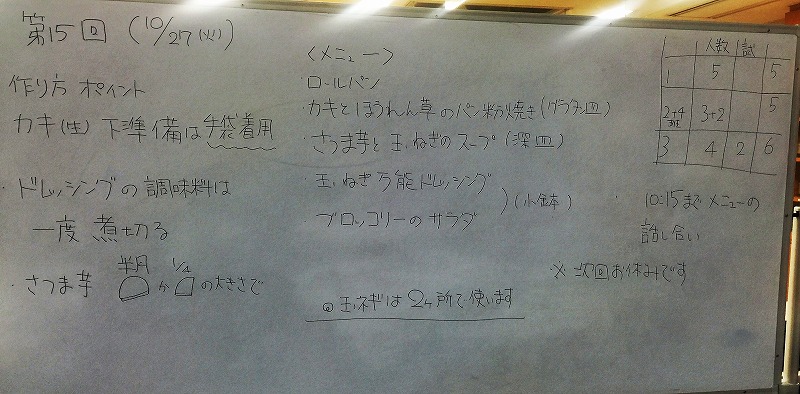 第15回 (10/27(火))
作り方 ポイント
カキ(生)下準備は手袋着用
・ドレッシングの調味料は
一度 煮切る
・さつま芋 半月 か 1/4 の大きさで
<メニュー>
・ロールパン
・カキとほうれん草のパン粉焼き(グラタン皿)
・さつま芋と玉ねぎのスープ(深皿)
・玉ねぎ万能ドレッシング
・ブロッコリーのサラダ
(小鉢)
◎玉ネギは2ヶ所で使います
人数 試
1 5 5
2+4班 3+2 5
3 4 2 6
・10:15まで メニューの
話し合い
※次回お休みです